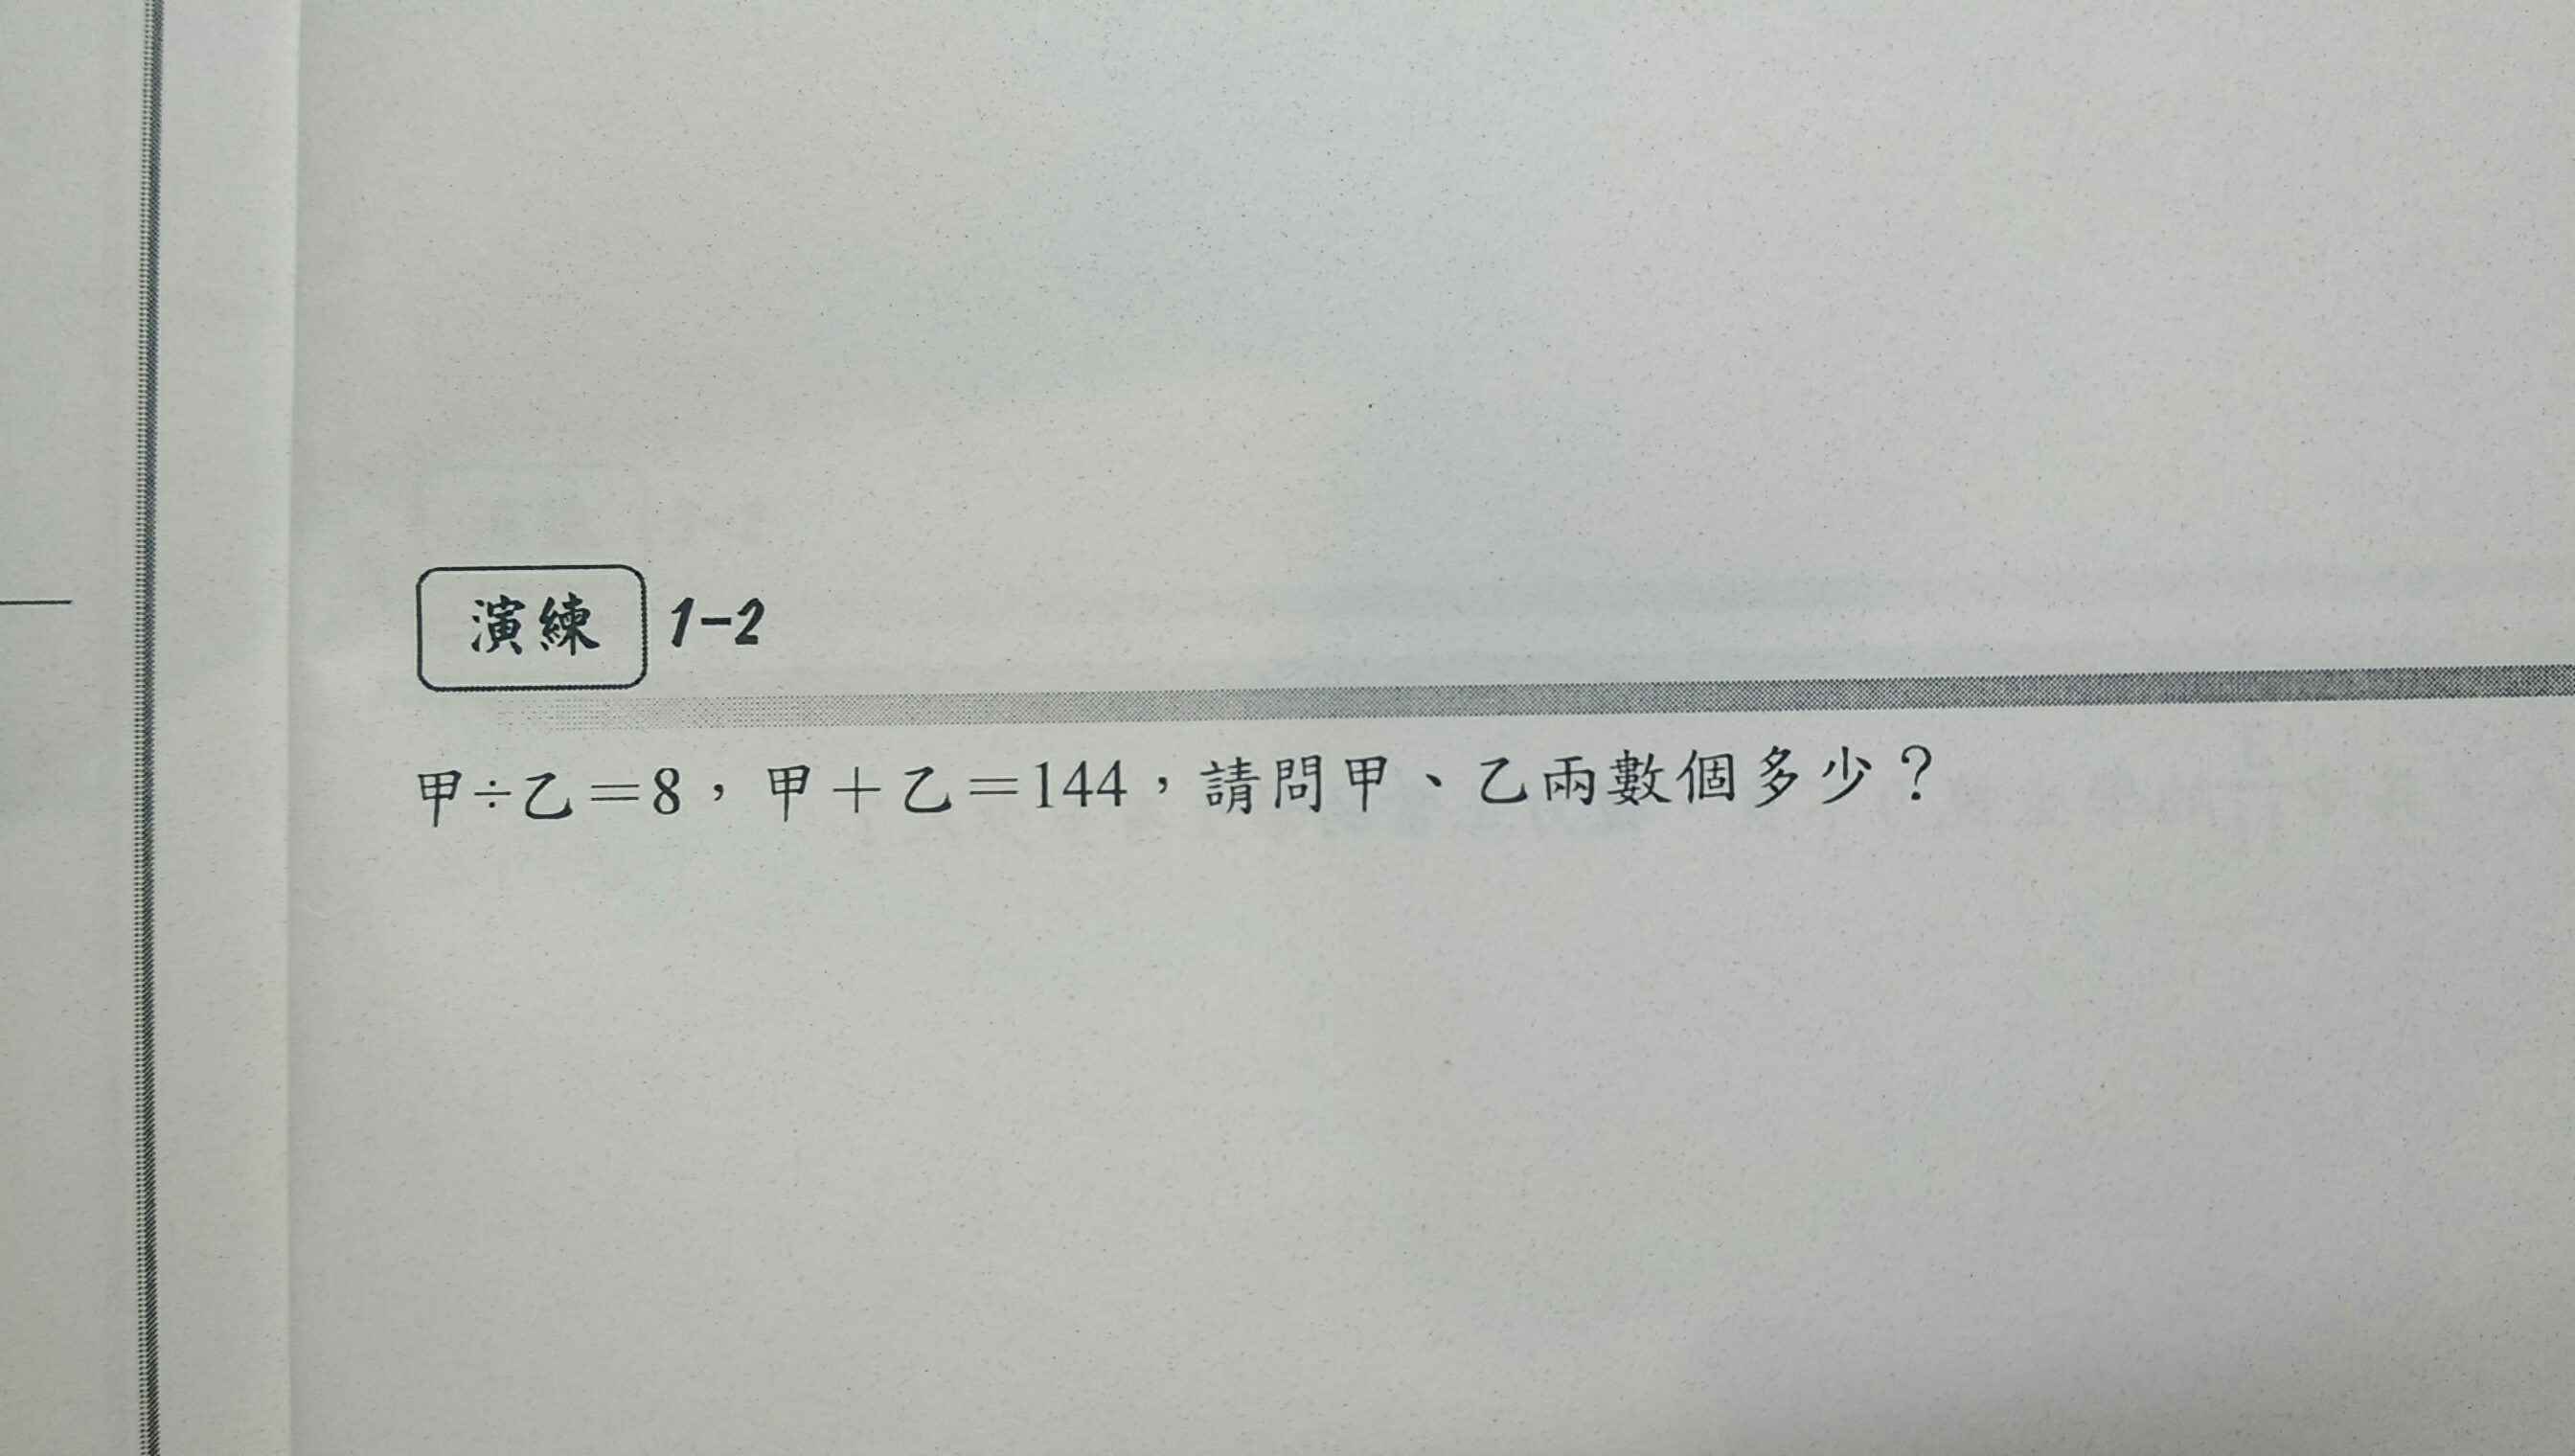 演練 1-2
甲÷乙=8，甲+乙=144，請問甲、乙兩數個多少？